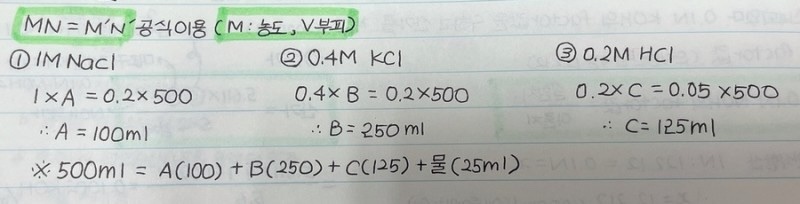 MN = M'N' 공식이용 (M: 농도, V부피)
① 1M Nacl ② 0.4M KCl ③ 0.2M HCl
1×A = 0.2×500 0.4×B = 0.2×500 0.2×C = 0.05×500
∴ A = 100ml ∴ B = 250ml ∴ C= 125ml
※ 500ml = A(100) + B(250) + C(125) + 물(25ml)